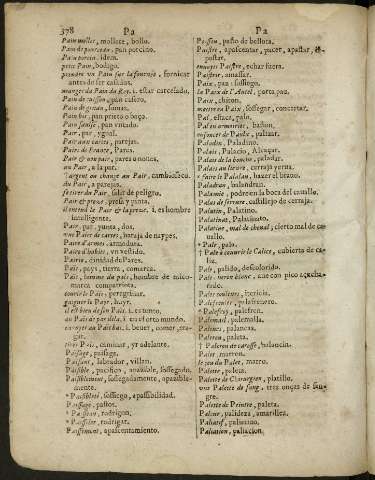 378 Pa Pa
Pain mollet, mollete, bollo.
Pain de pourceau, pan porcino.
Pain porcin, idem.
petit Pain, bodigo.
prendre un Pain sur la fournée, fornicar
antes de ser casados.
manger du Pain du Roy, i. estar carcelado.
Pain de maison, pan casero,
Pain de grenu,
Pain bis, pan prieto o baço.
Pain
Pair, par, ygual.
Pair aux cartes, parejas.
Pairs de France, Pares.
Pair & non pair, pares o nones,
au Pair, a la par.
l'argent en change au Pair, cambioseco.
du Pair, a parejas.
se tirer du Pair, salir de peligro,
Pair & presse, presa y pinta.
il entend le Pair & la presse. i. es hombre
intelligente.
Paire, par, yunta, dos,
une Paire de cartes, baraja de naypes.
Paire d'armes, armadura.
Paire d'habits, un vestido.
Pairie, dinidad de Pares.
Païs, pays, tierra, comarca.
Païs, homme du païs, hombre de mi co-
marca compatriota.
courir le Païs, peregrinar.
gaigner le Païs, huyr.
il est bien de son Païs. i. es tonto.
au Païs de par delà. i. en el otro mundo.
envoyer au Païs bas, i. bever, comer, tra-
gar.
tirer Païs, caminar, yr adelante.
Païsage, paisage.
Païsant, labrador, villan.
Paisible, pacifico, apazible, sossegado.
Paisiblement, sossegadamente, apazible-
mente.
* Paisibleté, sossiego, apassibilidad.
Paissage, pastos.
* Paisseau, rodrigon.
* Paisseler, rodrigar.
Paissement, apascentamiento.
Paisson, pasto de bellota.
Paistre, apascentar, pacer, apastar,
pastar.
envoyer Paistre, echar fuera.
Paistrir, amassar.
Paix, paz, sossiego.
la Paix de l'Autel, porta paz,
Paix, chiton.
mettre en Paix, sossegar, concertar.
Pal, estaca, palo.
Pal en armoiries, baston.
renfort de Paulx, palizar.
Paladin, Paladino.
Palais, Palacio, Alcaçar.
Palais de la bouche, paladar.
Palais au lievre, cerraja yerva.
se faire le Palais, hazer el brano.
Paladran, balandran.
Palamie, podre en la boca del cavallo.
Palastre de serrure, castillejo de cerraja.
Palatin, Palatino.
Palatinat, Palatinato.
Palatine, mal de cheval, cierto mal de ca-
vallo.
* Pale, palo.
† Pale à couvrir le Calice, cubierta de ca-
liz.
Pale, palido, descolorido.
Pale, ave con pico acucha-
rado.
Palefrenier, palafrenero.
* Palefroy, palefren.
Palemail, palemalla.
Palencs, palancas.
Paleron, paleta.
†
Palet, marron.
le jeu du Palet, marro.
Palette, paleta.
Palette de Chirurgien, platillo.
une Palette de sang, tres onças de san-
gre.
Palette de Peintre, paleta.
Paleur, palideza, amarillez.
Paliatif, paliatino.
Paliation, paliacion.